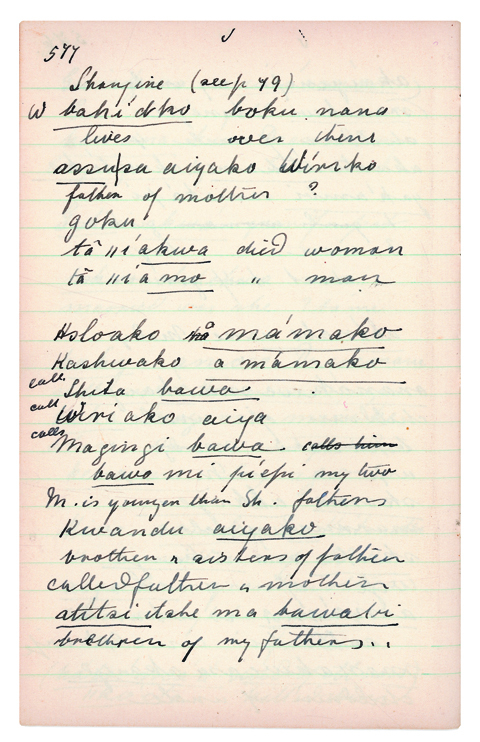 577
Shonjine (see p 79)
W bahi'dko boku nana
lives over there
assusa aiyako Wiriko
father of mother ?
goku
tā ||íakwa died woman
tā ||íamo " man
Hsloako má'mako
Kashwako a mámako
calls Shita bawa
call Wiriákó aiya
calls Magingi bawa calls him
bawa mi píepi my two
M. is younger than Sh. fathers
Kwandu aiyako
brothers & sisters of father
called father & mother
atítsi itshe ma bawabi
brethren of my fathers..